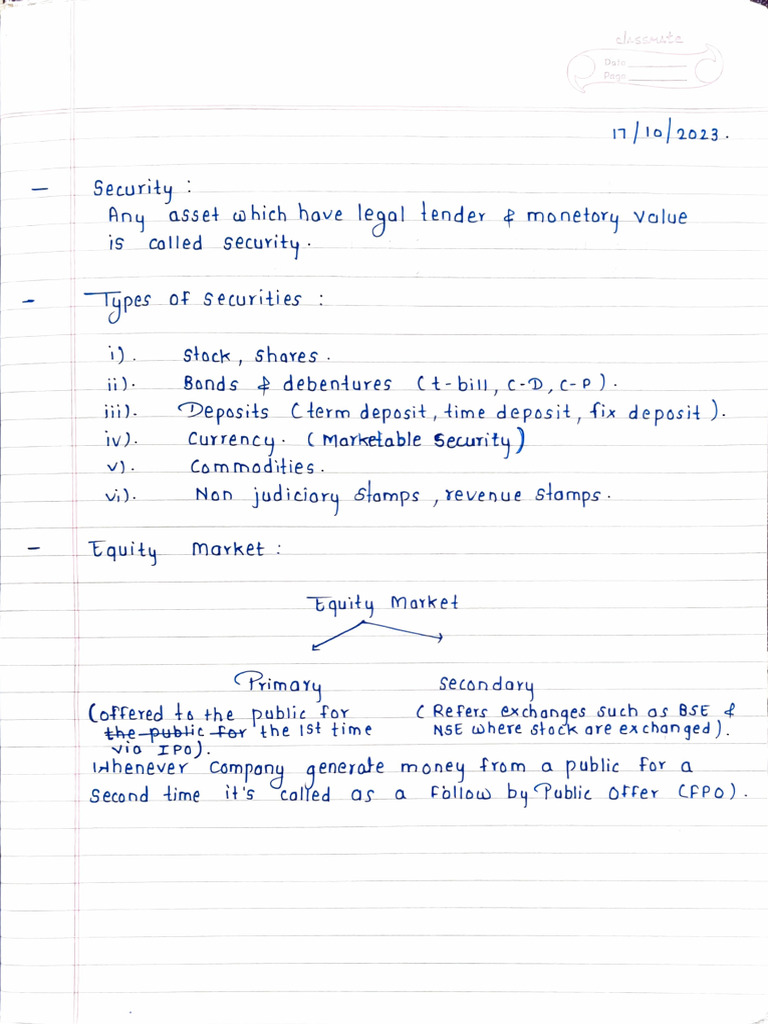 classmate
Date
Page
17/10/2023.
– Security :
Any asset which have legal tender & monetory value
is called security.
– Types of securities :
i). Stock, shares.
ii). Bonds & debentures (t-bill, C-D, C-P).
iii). Deposits (term deposit, time deposit, fix deposit).
iv). Currency. (Marketable Security)
v). Commodities.
vi). Non judiciary stamps, revenue stamps.
– Equity Market :
Equity Market
Primary Secondary
(offered to the public for (Refers exchanges such as BSE &
the public for the 1st time NSE where stock are exchanged).
via IPO).
Whenever Company generate money from a public for a
second time it's called as a follow by Public Offer (FPO).